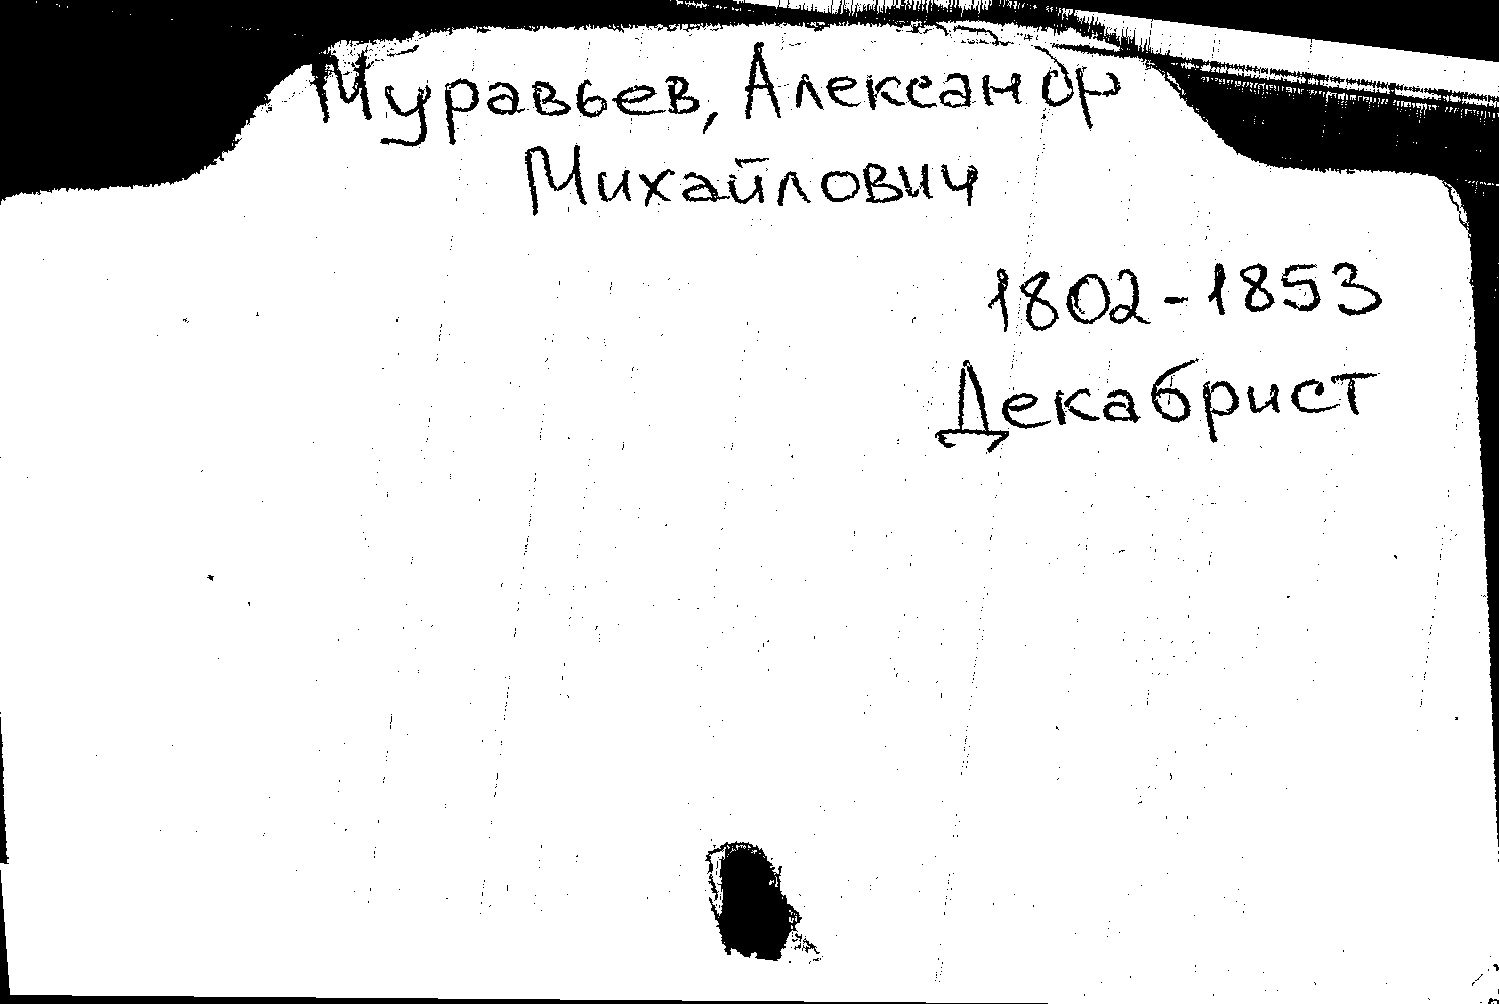 Муравьев, Александр
Михайлович
1802-1853
Декабрист